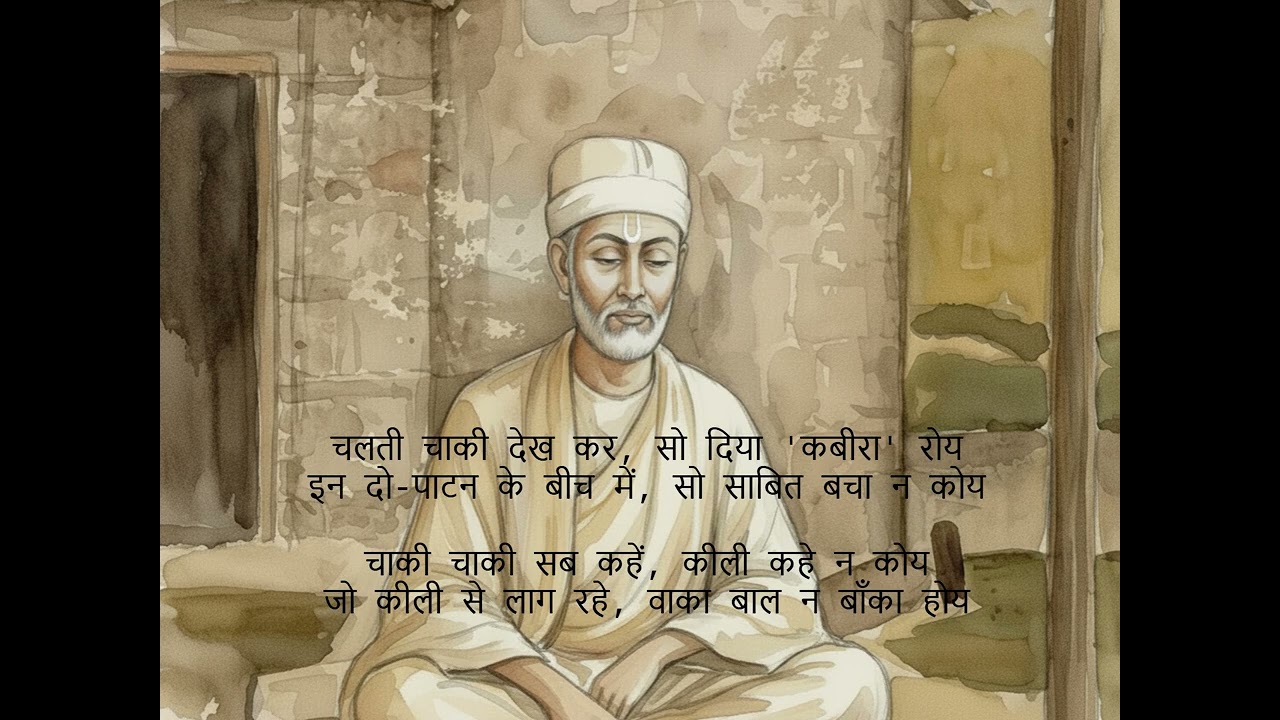 चलती चाकी देख कर, सो दिया 'कबीरा' रोय
इन दो-पाटन के बीच में, सो साबित बचा न कोय
चाकी चाकी सब कहें, कीली कहे न कोय
जो कीली से लाग रहे, वाका बाल न बाँका होय